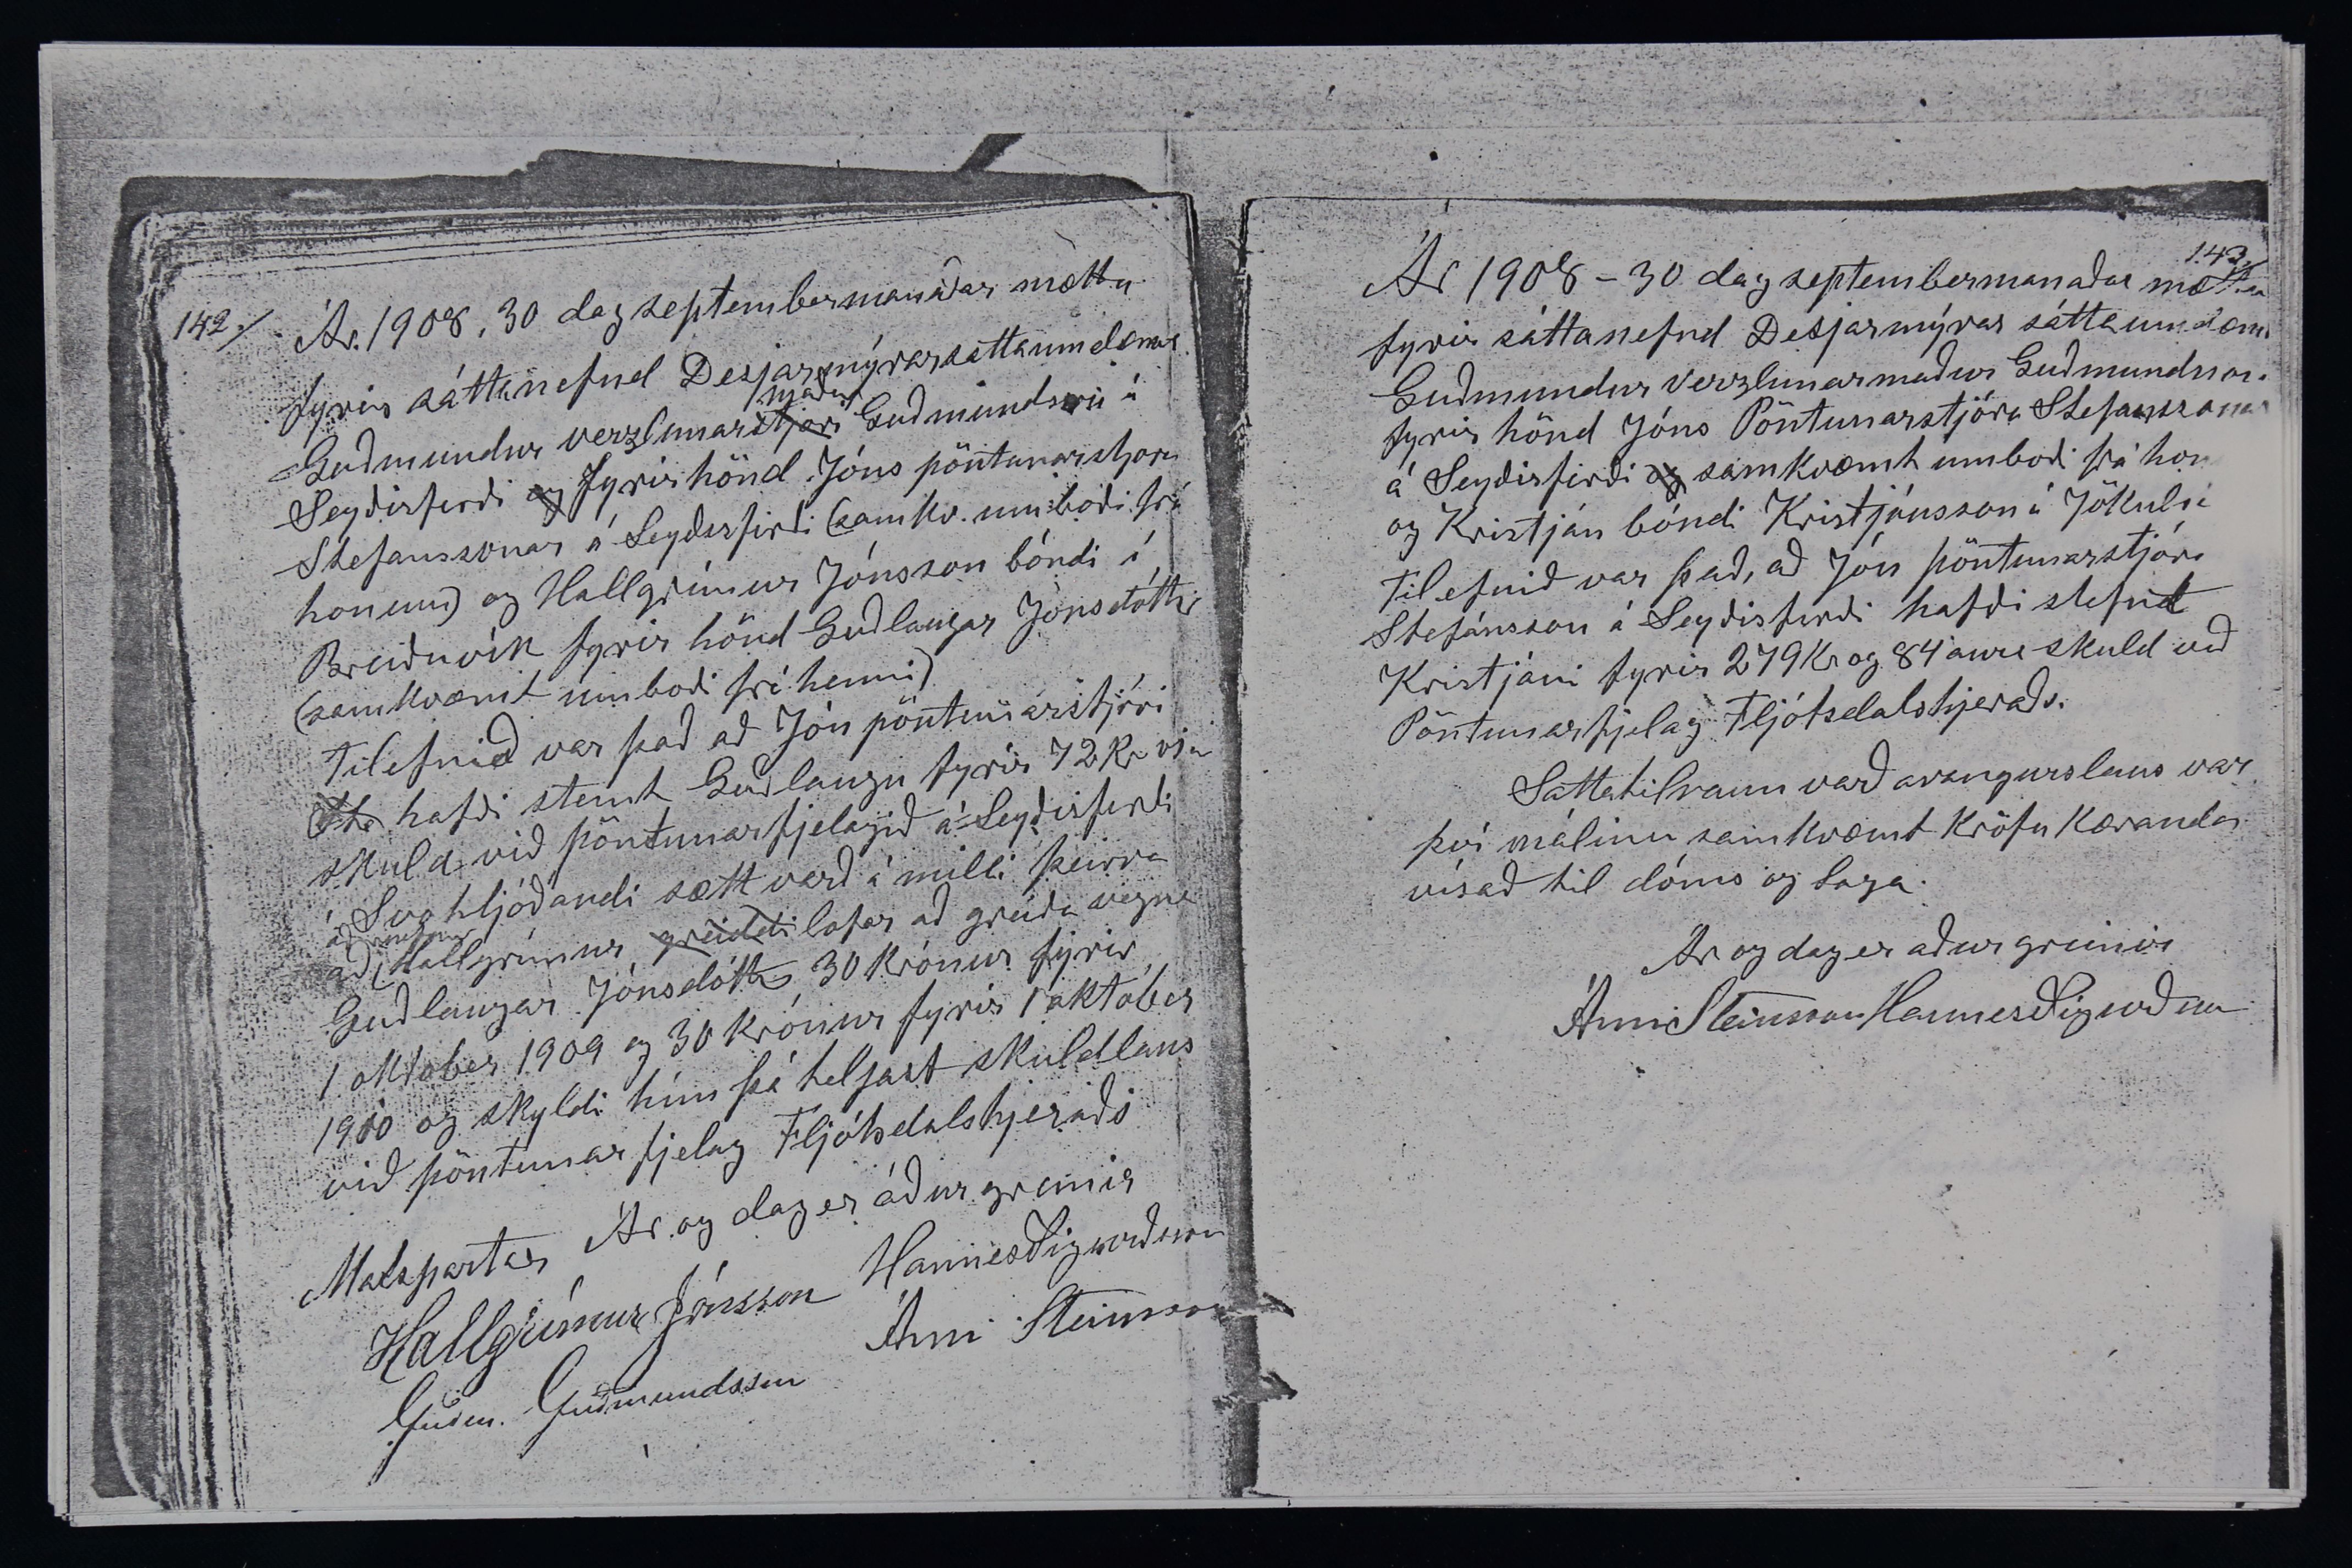 142./
Ár. 1908, 30 dag septembermanaðar mættu
fyrir sáttanefnd Desjarmýrarsáttaumdæmis
maður
Guðmundur verzlunarstjóri Guðmundsson á
Seyðisfirði og fyrir hönd Jóns pöntunarstjóra
Stefanssonar á Seyðisfirði (samkv. umboði frá
honum) og Hallgrímur Jónsson bóndi í
Breiðuvík fyrir hönd Guðlaugar Jónsdóttir
(samkvæmt umboði frá henni)
Tilefnið var það að Jón pöntunarstjóri
hafði stemt Guðlaugu fyrir 72 Kr
skuld við pöntunarfjelagið á Seyðisfirði
Svohljóðandi sætt varð á milli þeirra
að Hallgrímur greiddi lofar að greiða vegna
Guðlaugar Jónsdóttr 30 Krónur fyrir
1 oktober 1909 og 30 krónur fyrir 1 aktóber
1910 og skyldi hún þá teljast skuldlaus
við pöntunarfjelag Fljótsdalshjeraðs
Ár og dag er áður greinir
Malspartar
Hallgrímur Jónsson Hannes Sigurðsson
Árni Steinsson
Guðm. Guðmundsson
143/
Ár 1908 - 30 dag septembermanaðar mættu
fyrir sáttanefnd Desjarmýrar sáttaumdæm
Guðmundur verzlunarmaður Guðmundsson
fyrir hönd Jóns Pöntunarstjóra Stefanssonar
á Seyðisfirði og samkvæmt umboði frá hon
og Kristján bóndi Kristjánsson á Jökulsá
Tilefnið var það, að Jón pöntunarstjóri
Stefánsson á Seyðisfirði hafði stefnt
Kristjáni fyrir 279 Kr og 84 aura skuld við
Pöntunarfjelag Fljótsdalshjeraðs.
Sáttatilraun varð arangurslaus var
því málinu samkvæmt kröfu Kæranda
vísað til dóms og laga.
Ár og dag er aður greinir
Árni Steinsson Hannes Sigurðsson